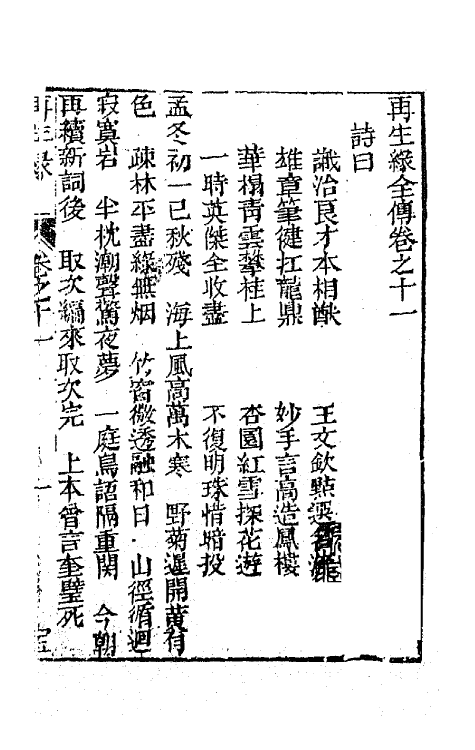 再生緣全傳卷之十一
詩曰
識治良才本相猷　王文欽點選
雄章筆健扛龍鼎　妙手言高造鳳樓
華榻靑雲攀桂上　杏園紅雪探花遊
一時英傑全收盡　不復明珠情暗投
孟冬初一已秋殘　海上風高萬木寒　野菊遲開黃有
色　疎林平盡綠無烟　竹窗微透融和日　山徑循迴
寂寞岩　半枕潮聲驚夜夢　一庭鳥語隔重関　今朝
再續新詞後　取次編來取次完　上本曾言奎璧死
再生緣　卷之十一